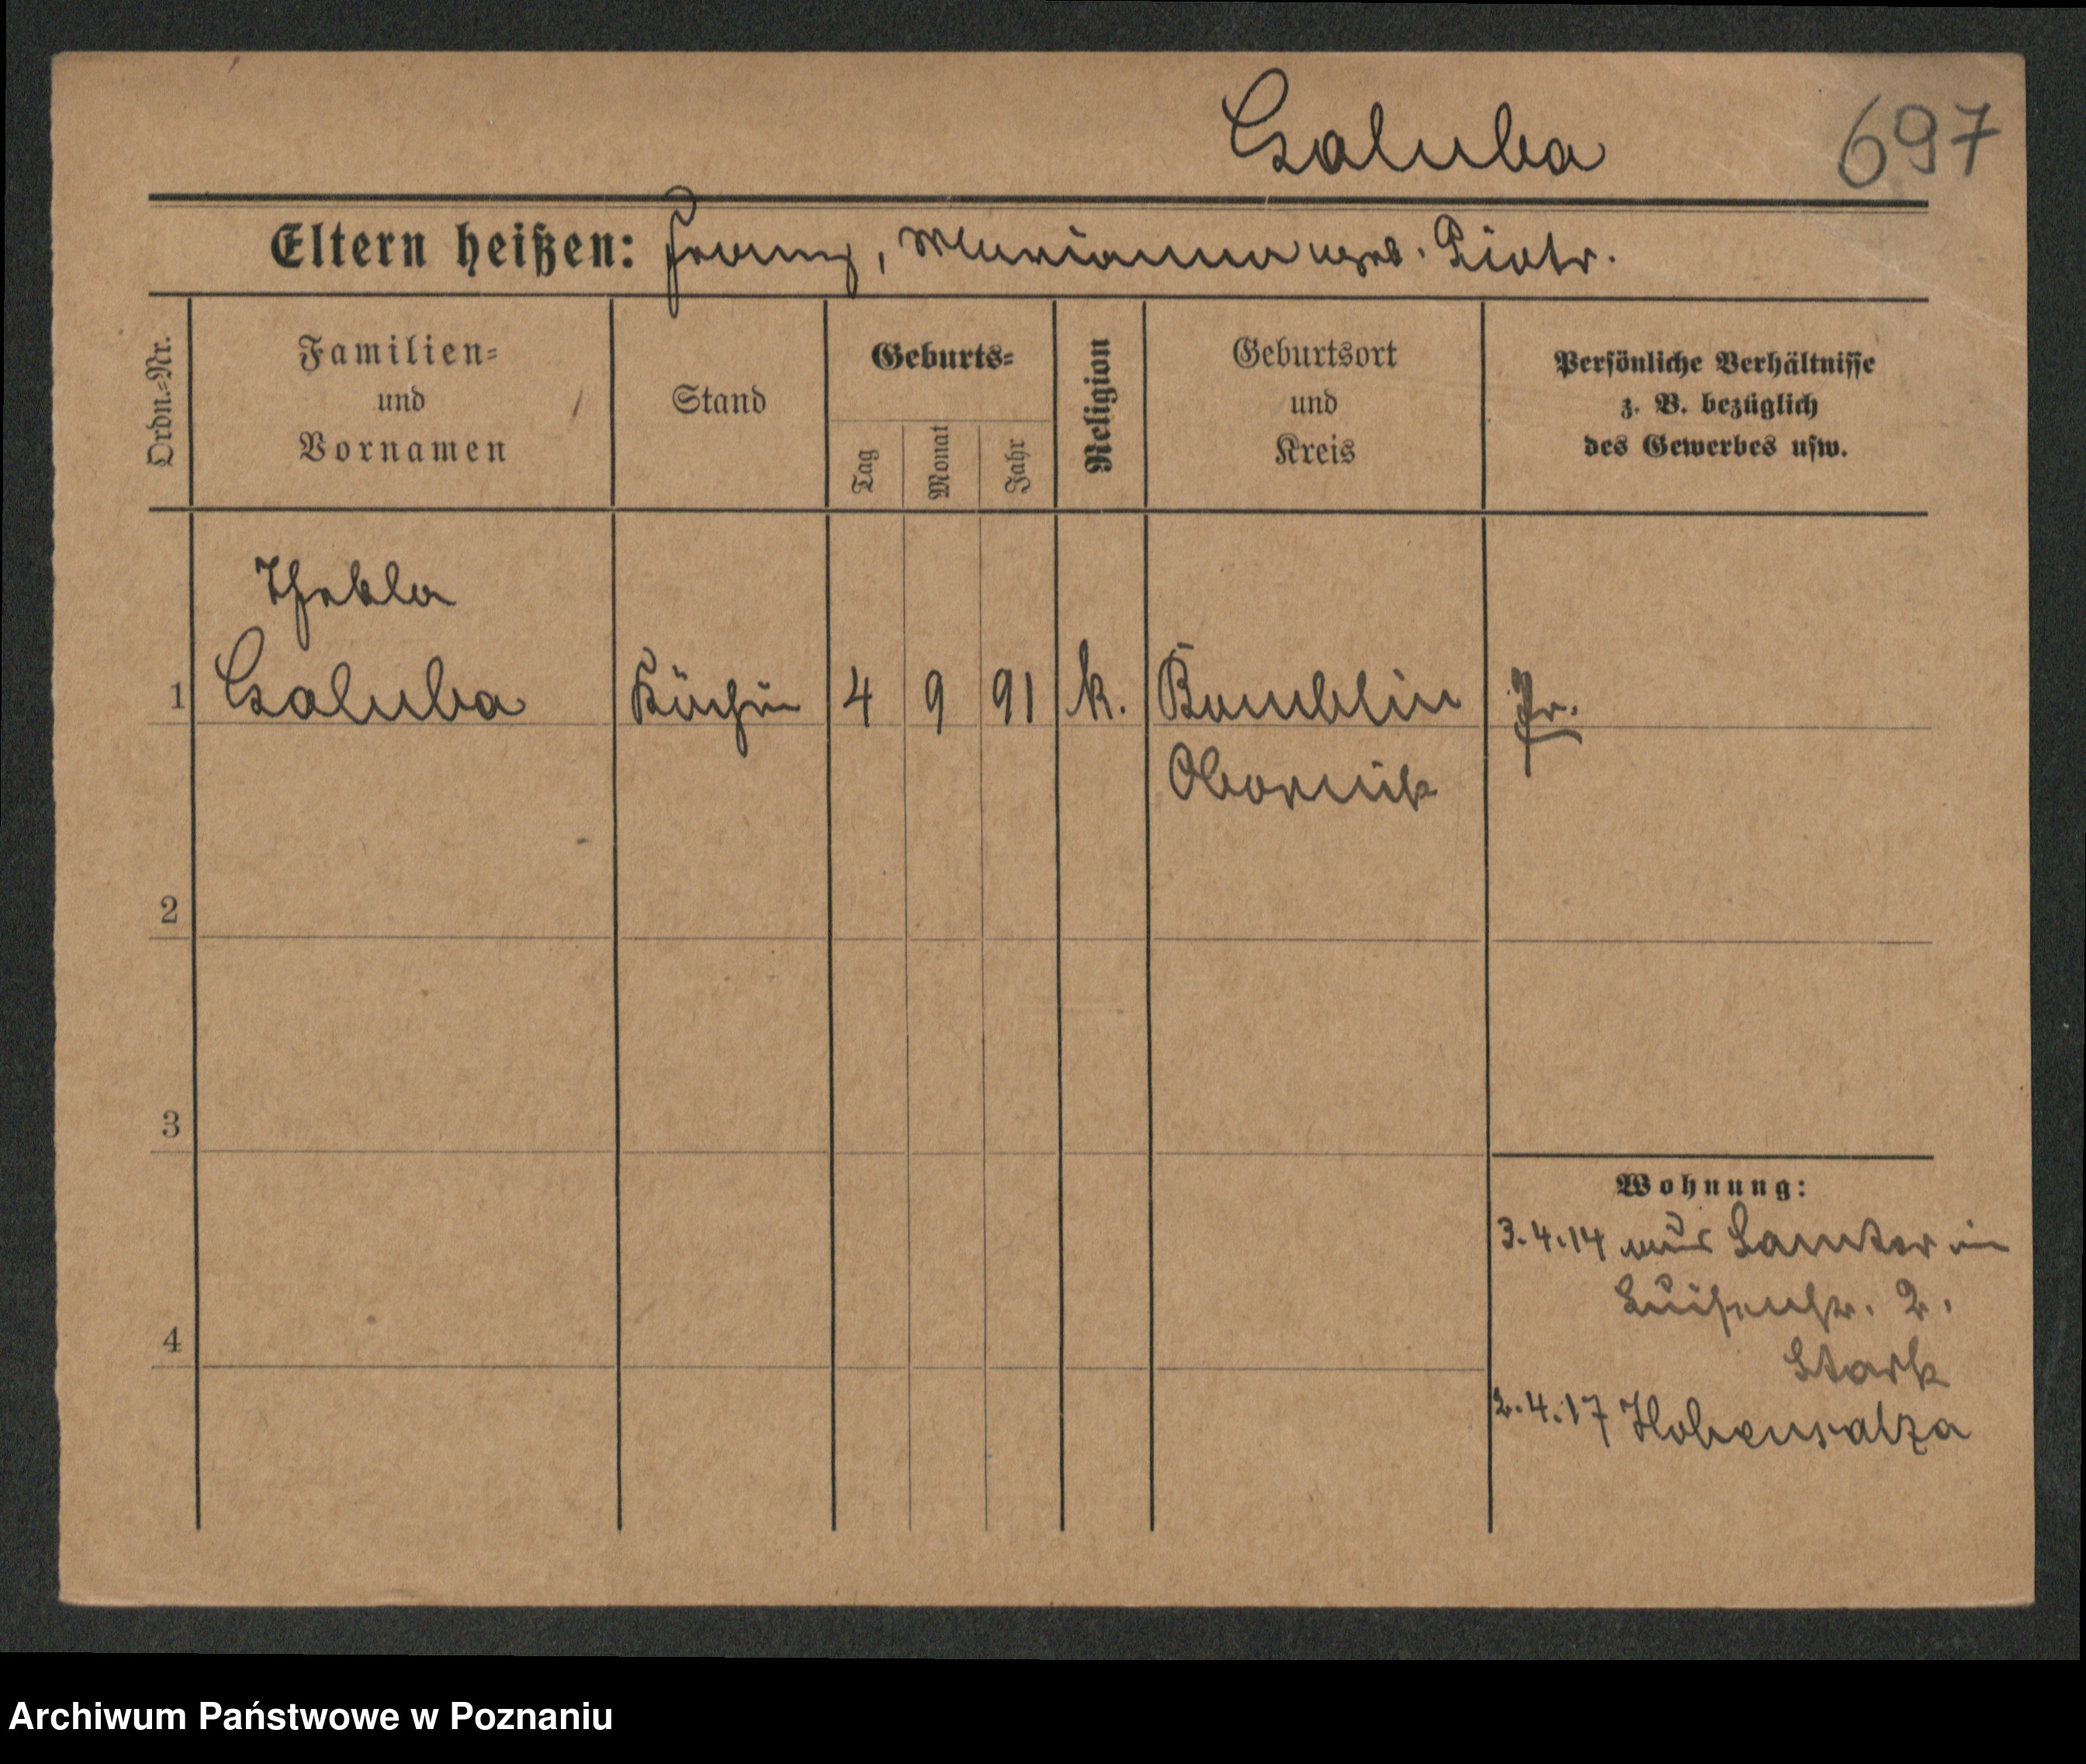 Czaluba 697
Eltern heißen: Franz, Marianna geb. Piotr.
Ordn.=Nr.
Familien=
und
Vornamen
Stand
Geburts=
Tag
Monat
Jahr
Religion
Geburtsort
und
Kreis
Persönliche Verhältnisse
z. B. bezüglich
des Gewerbes usw.
Thekla
1 Czaluba Köchin 4 9 91 k. Bomblin Pr.
Obornik
2
3
Wohnung:
3.4.14 aus Samter in
Luisenstr. 2.
4
Stark
2.4.17 Hohensalza
Archiwum Państwowe w Poznaniu